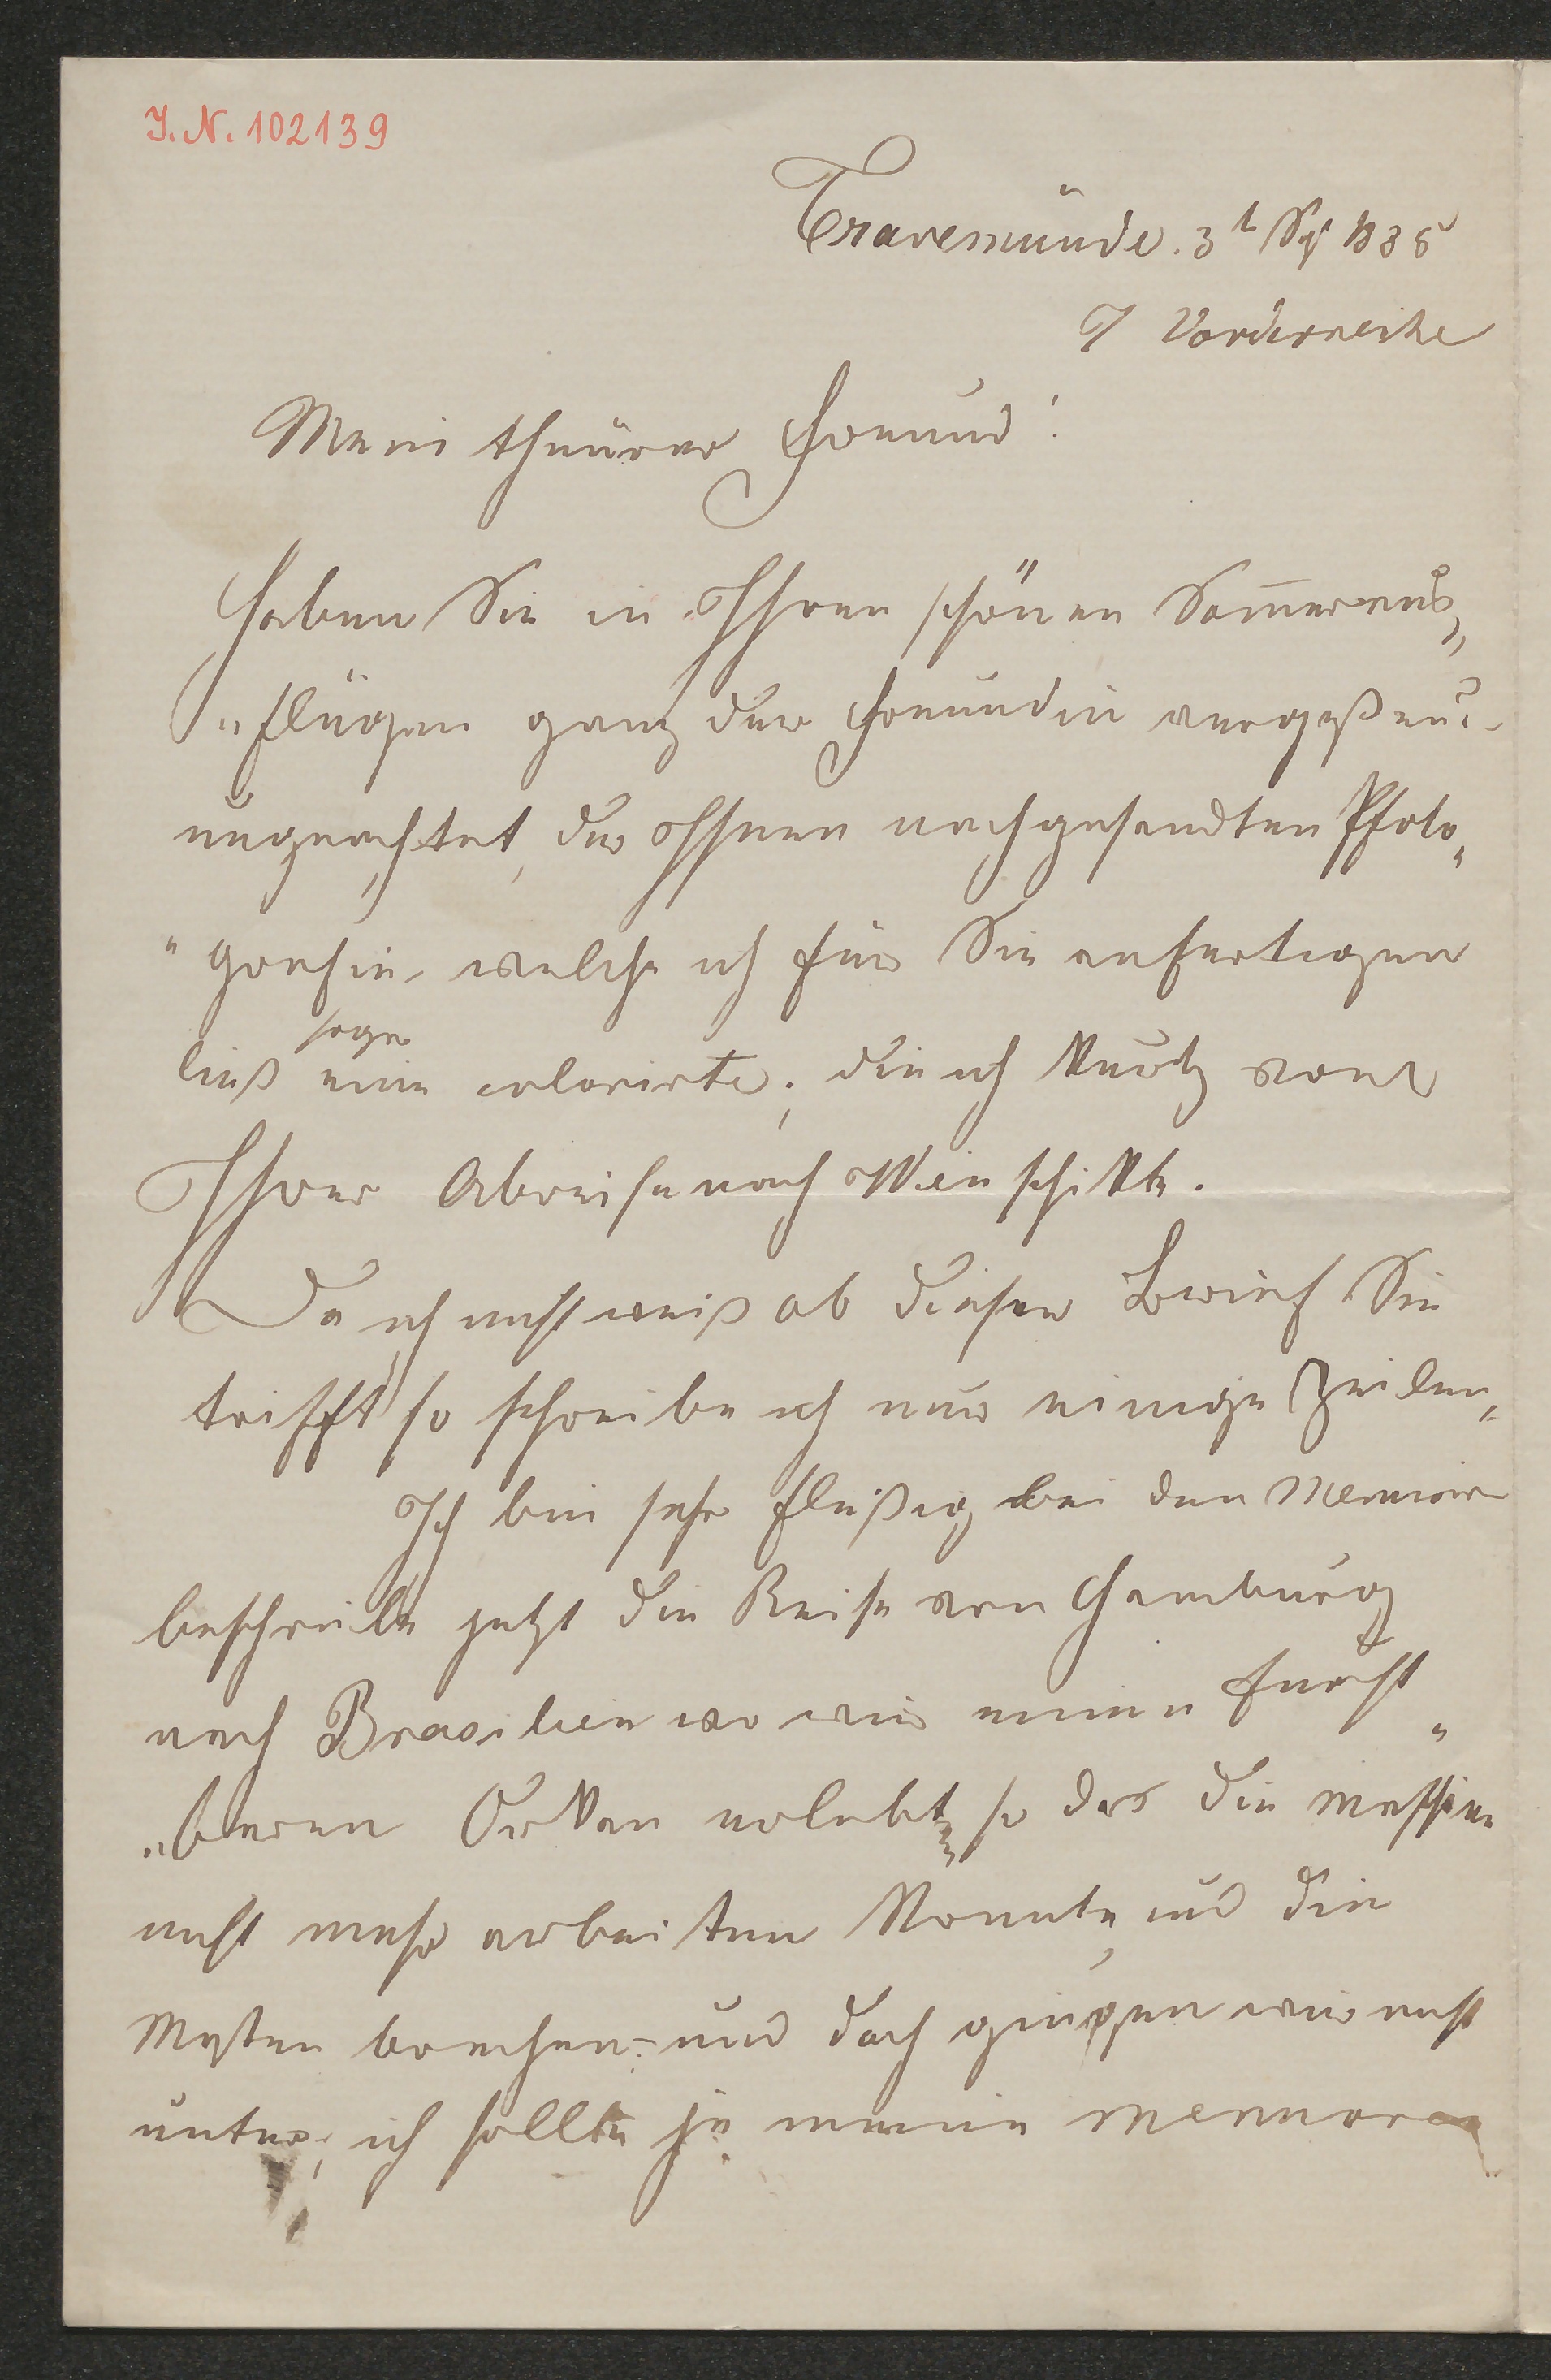 I. N. 102139
Travemünde. 3t Sep 1885
7 Vorderreihe
Mein theurer Freund!
Haben Sie in Ihren schönen Som̄eraus„
„flügen ganz der Freundin vergeßen?
ungeachtet, der Ihnen nachgesandten Photo„
„grafie, welche ich für Sie anfertigen
sogar
ließ eine colorirte; die ich kurtz vor
Ihrer Abreise nach Wien schikte.
Da ich nicht weiß ob dieser Brief Sie
trifft, so schreibe ich nur einige Zeilen,
Ich bin sehr fleißig bei den Memoire
beschreibe jetzt die Reise von Hamburg
nach Brasilien wo wir einen furcht„
„baren Orkan erlebt, so das die Maschine
nicht mehr arbeiten konnte, und die
Masten brachen – und doch gingen wir nicht
unter, ich sollte ja meine Memoire